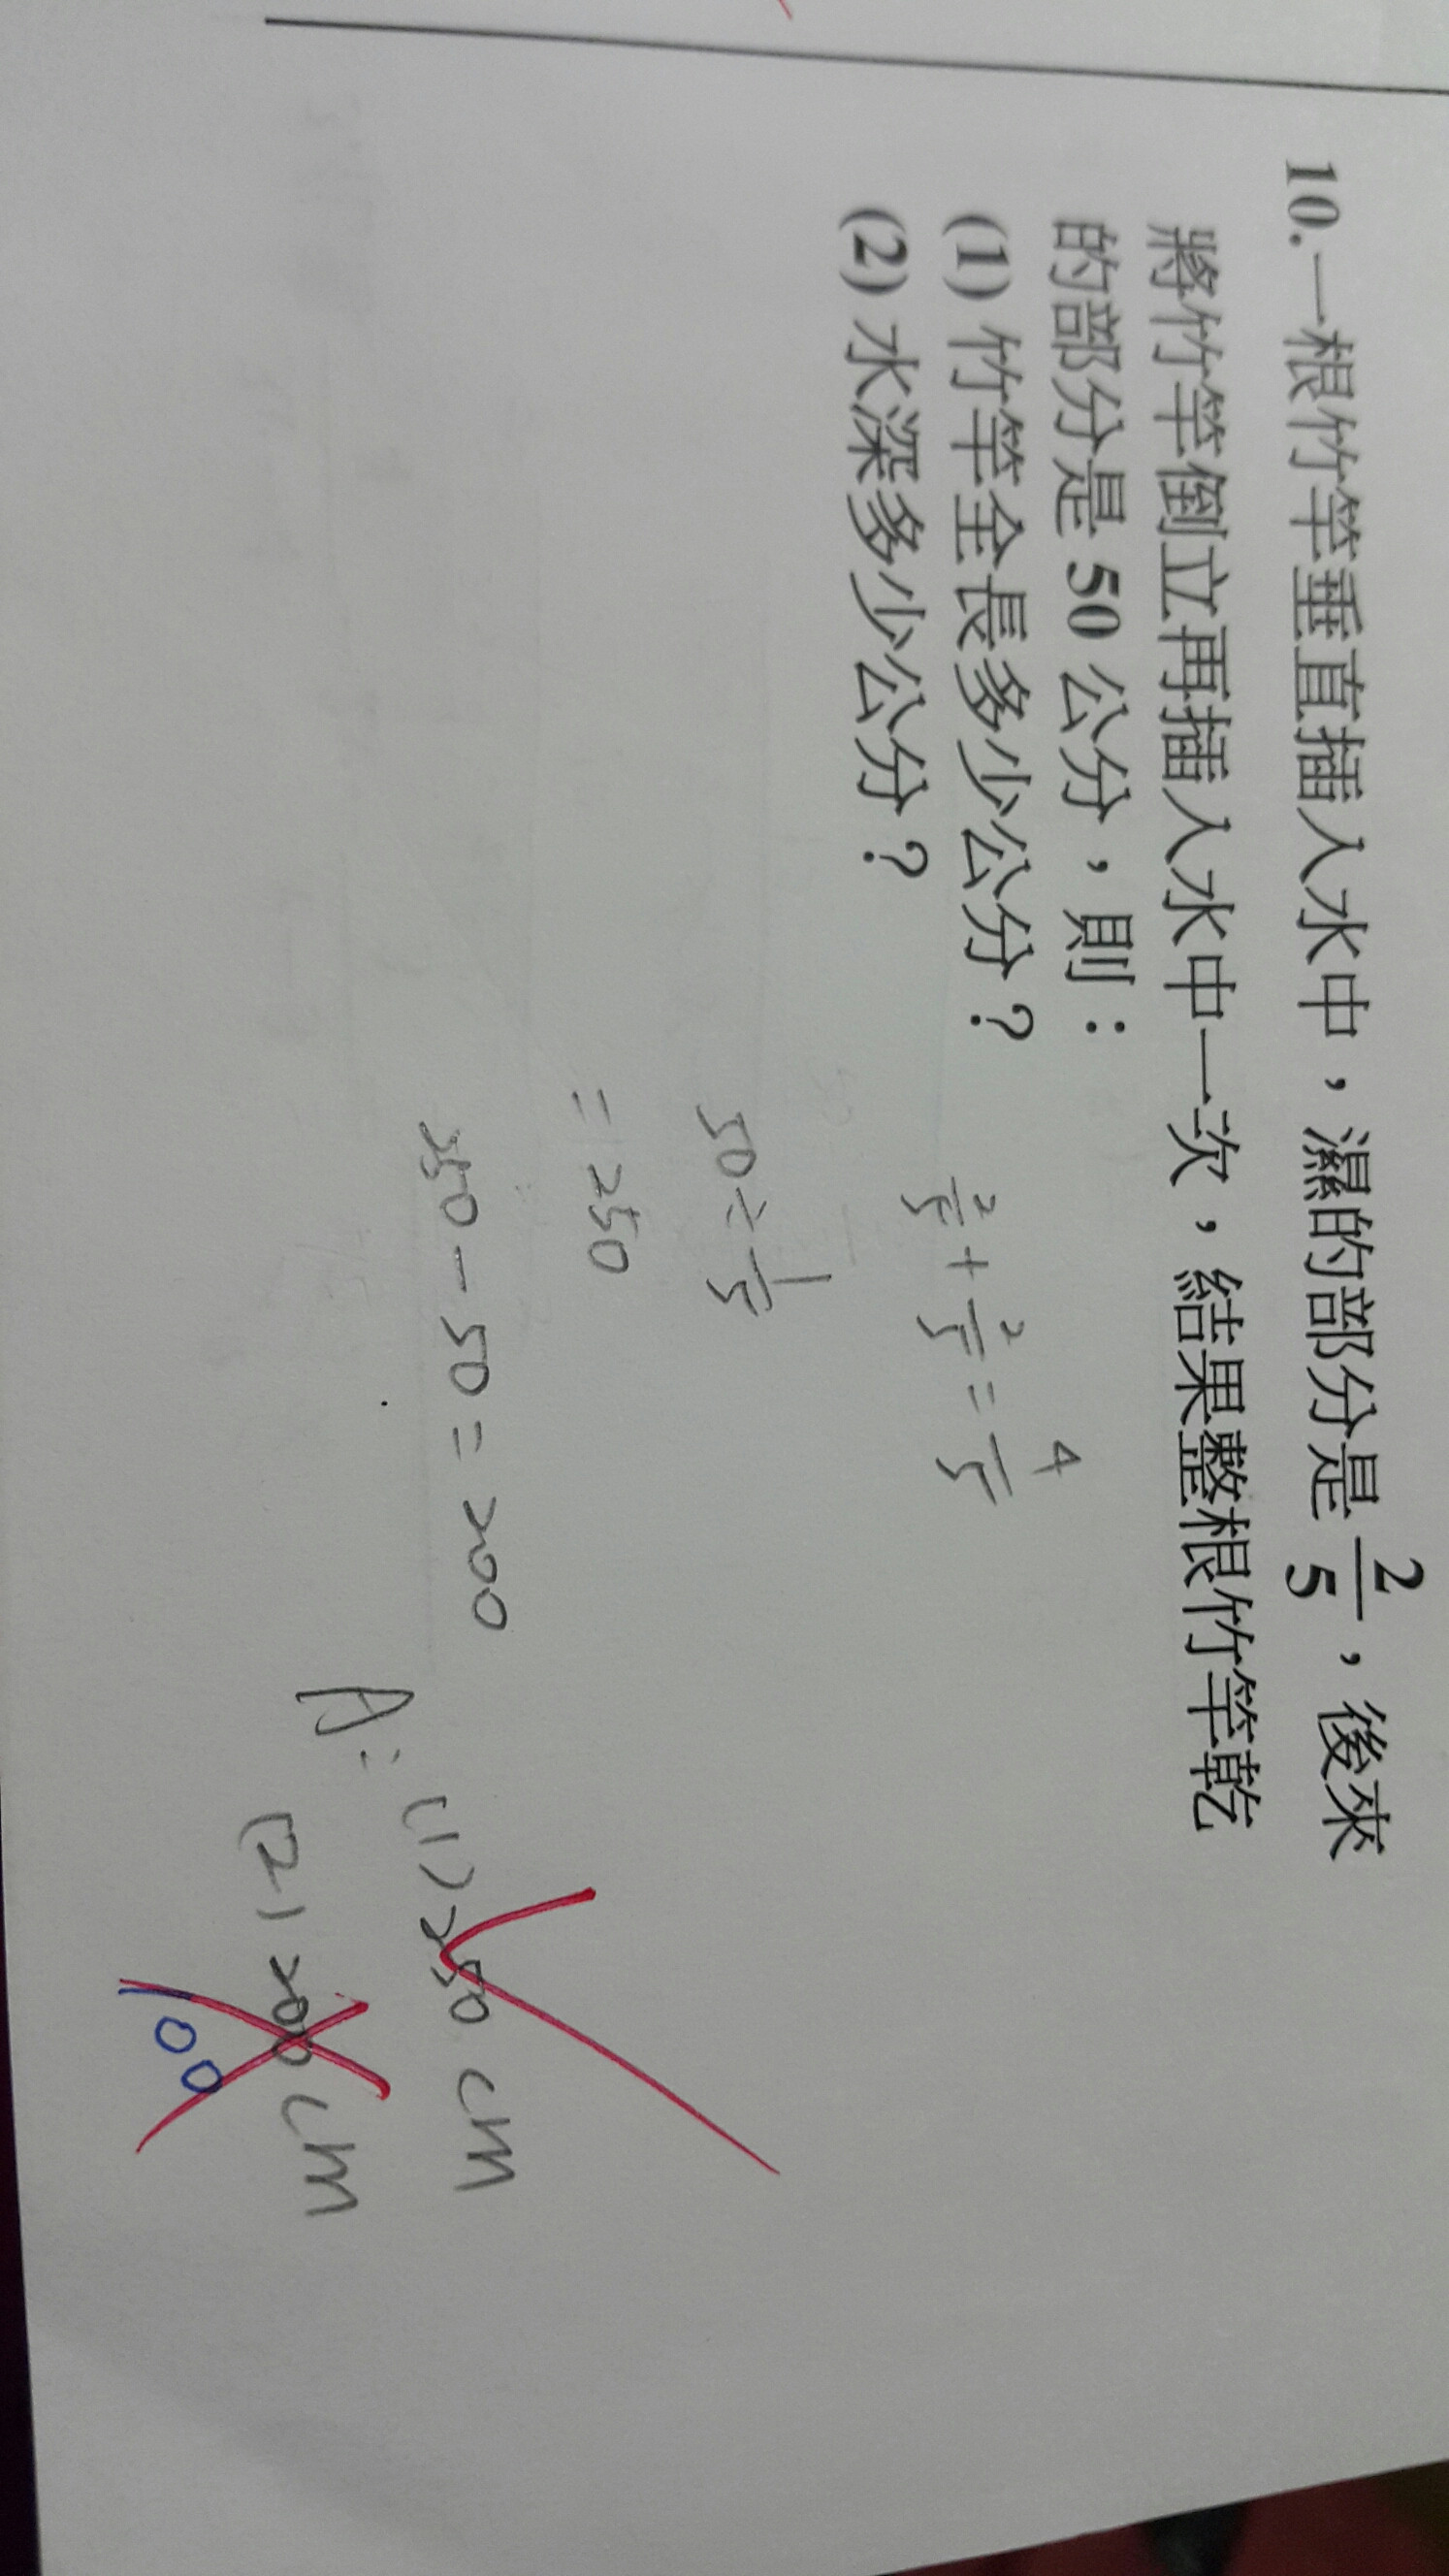 10. 一根竹竿垂直插入水中，濕的部分是 2/5，後來
將竹竿倒立再插入水中一次，結果整根竹竿乾
的部分是 50 公分，則：
(1) 竹竿全長多少公分？
(2) 水深多少公分？
2/5 + 2/5 = 4/5
50 ÷ 1/5
= 250
250 - 50 = 200
A: (1) 250 cm
(2) 200 cm
100